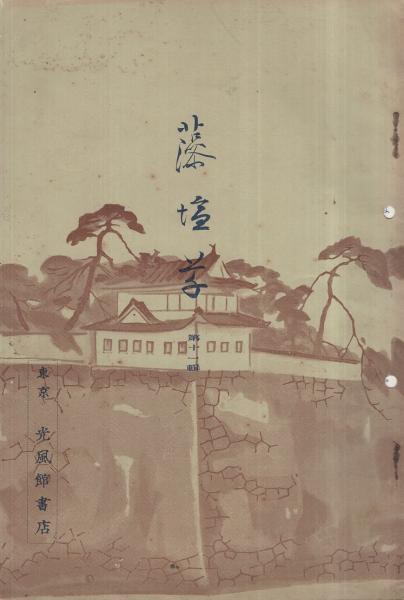 藻塩草
第十一輯
東京 光風館書店